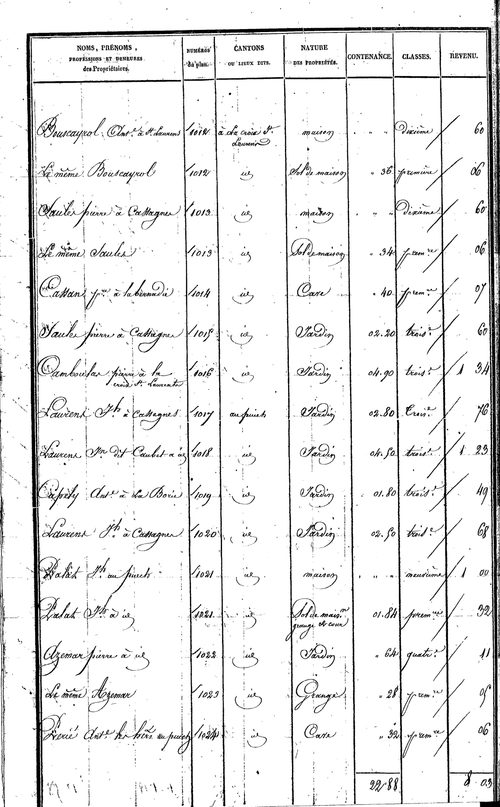 NOMS, PRÉNOMS, PROFESSIONS ET DEMEURES des Propriétaires. NUMÉROS du plan. CANTONS OU LIEUX DITS. NATURE DES PROPRIÉTÉS. CONTENANCE. CLASSES. REVENU.
Bouscayrol Ant.e à St Laurens 1012 à la croix St. Laurens maison " " dixième 60
Le même Bouscayrol 1012 id Sol de maison " 36 première 06
Saules pierre à Cassagnes 1013 id maison " " dixième 60
Le même Saules 1013 id Sol de maison " 34 prem.re 06
Cassan p.re à la bernadie 1014 id Cave " 40 prem.re 07
Saules pierre à Cassagnes 1015 id Jardin 02.20 trois.e 60
Camboulas pierre à la croix St. Laurens 1016 id Jardin 04.90 trois.e 1 34
Laurens J.h à Cassagnes 1017 au puech Jardin 02.80 trois.e 76
Laurens dit Caubet a id 1018 id Jardin 04.50 trois.e 1 23
Capely Ant.e à La Borie 1019 id Jardin 01.80 trois.e 49
Laurens J.h à Cassagnes 1020 id Jardin 02.50 trois.e 68
Palat J.h au puech 1021 id maison " " neuvième 1 00
Palat J.h à id 1021 id Sol de mais.on grange et cour 01.84 prem.re 32
Azemar pierre à id 1022 id Jardin " 64 quatr.e 11
Le même Azemar 1023 id Grange " 28 prem.re 05
Ant.e les hérs au puech 1024 id Cave " 32 prem.re 06
22.88 8 03